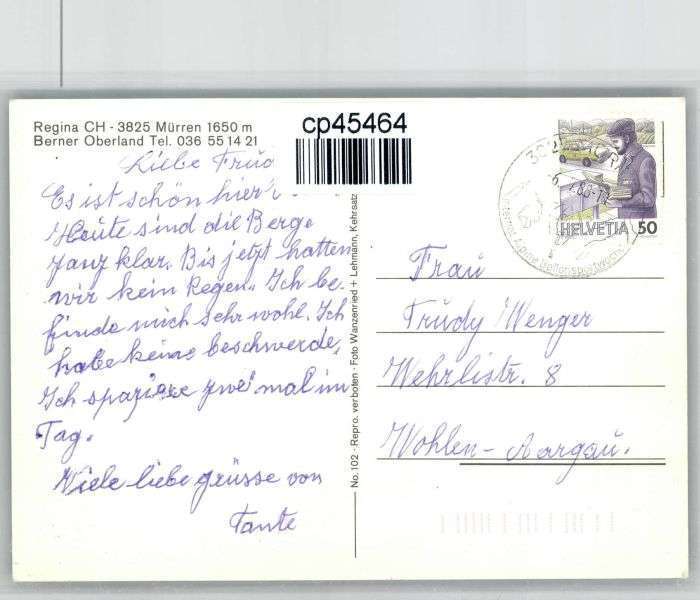 Regina CH - 3825 Mürren 1650 m
Berner Oberland Tel. 036 55 14 21
cp45464
Liebe Trud
Es ist schön hier
Heute sind die Berge
ganz klar. Bis jetzt hatten
wir kein Regen. Ich be.
finde mich sehr wohl. Ich
habe keine beschwerde.
Ich spaziere zwei mal im
Tag.
Viele liebe grüsse von
Tante
No. 102 - Repro. verboten - Foto Wanzenried + Lehmann, Kehrsatz
HELVETIA 50
Frau
Trudy Wenger
Wehrlistr. 8
Wohlen-Aargau.